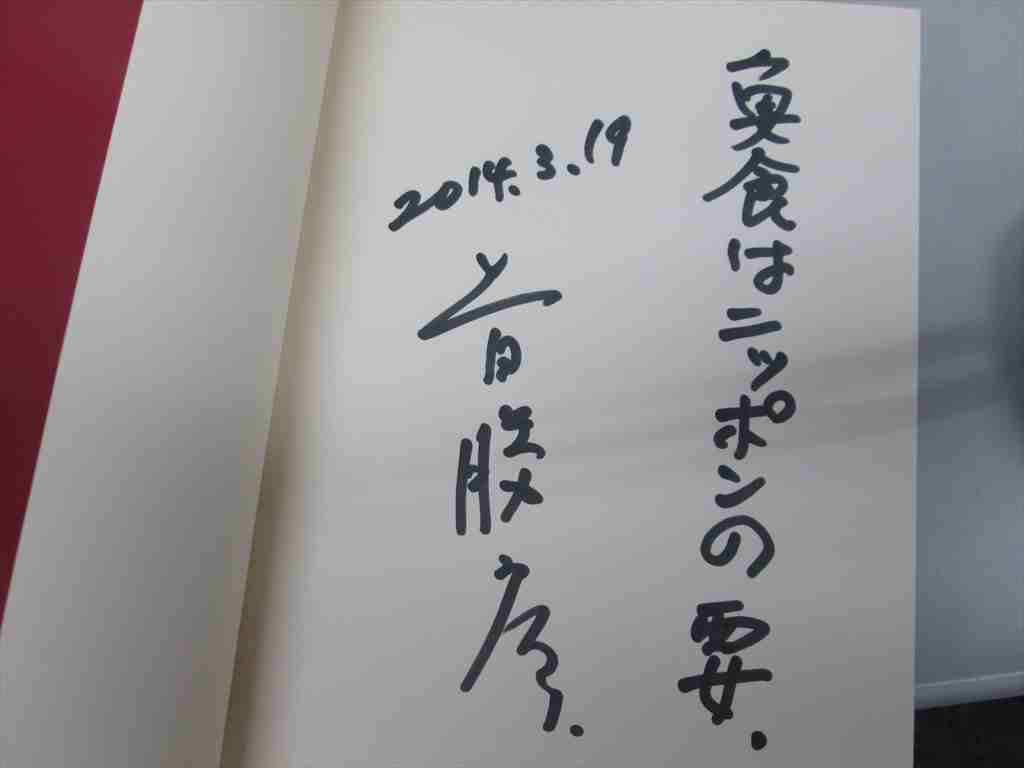 魚食はニッポンの要.
2014.3.19
上田勝彦.